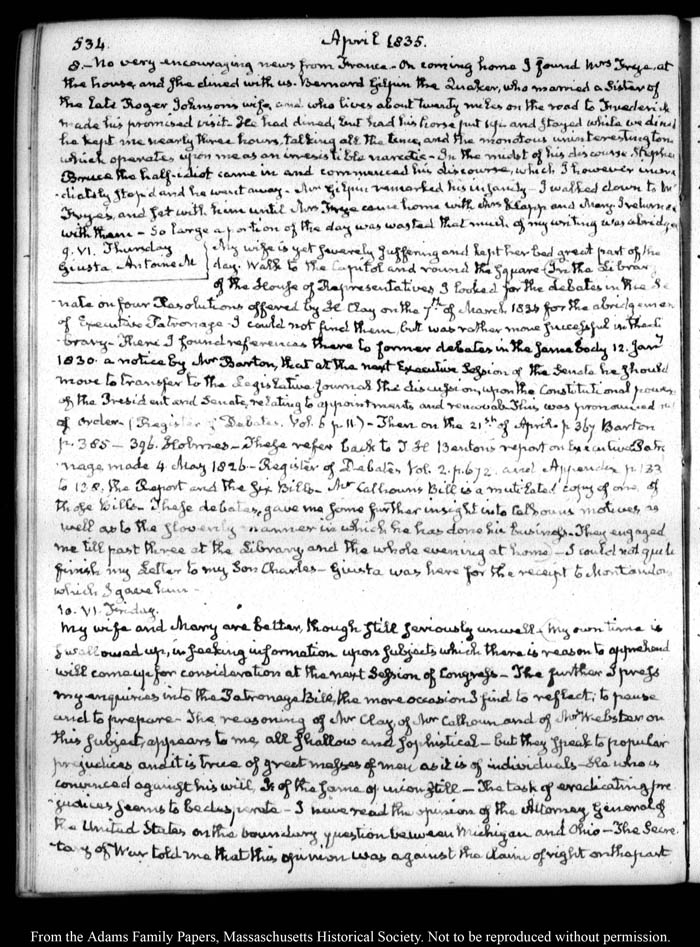 534. April 1835.
8.— No very encouraging news from France— On coming home I found Mrs Frye, at
the house, and she dined with us. Bernard Gilpin the Quaker, who married a Sister of
the late Roger Johnson's wife, and who lives about twenty miles on the road to Frederick
made his promised visit. He had dined, but had his horse put up and stayed while we dined
he kept me nearly three hours, talking all the time, and the monotonous uninteresting tone
which operates upon me as an irresistible narcotic— In the midst of his discourse Stephen
Bruce the half-idiot came in and commenced his discourse, which I however
-diately stop'd and he went away— Mr Gilpin remarked his insanity— I walked down to Mr
Frye's, and set with him until Mrs Frye came home with Mrs Clapp and Mary I
with them— So large a portion of the day was wasted that much of my writing was
9. VI. Thursday My wife is yet severely suffering and kept her bed great part of the
Giusta Antoine M day. Walk to the Capitol and round the Square— In the Library
of the House of Representatives I looked for the debates in the Se
nate on four Resolutions offered by H Clay on the 7th of March 1834 for the
of Executive Patronage. I could not find them, but was rather more successful in the Li
-brary— There I found references there to former debates in the same body 12. Jany
1830. a notice by Mr Barton, that at the next Executive Session of the Senate he should
move to transfer to the Legislative Journal the discussion, upon the Constitutional powers
of the President and Senate, relating to appointments and removals This was pronounced
of order— (Register of Debates. Vol. 6 p. 11)— Then on the 21st of April p. 367 Barton
p. 385— 396. Holmes— These refer back to T H Benton's report on Executive Patro
nage made 4. May 1826— Register of Debates Vol. 2. p. 672. and Appendix p. 133
to 138, the Report and the six Bills— Mr Calhoun's Bill is a mutilated copy of one, of
those Bills— These debates, gave me some further insight into Calhoun's motives, as
well as to the slovenly manner in which he has done his business— They engaged
me till past three at the Library and the whole evening at home— I could not quite
finish my Letter to my Son Charles— Giusta was here for the receipt to
which I gave him—
10. VI. Friday.
My wife and Mary are better, though still seriously unwell. My own time is
swallowed up, in seeking information upon subjects which there is reason to apprehend
will come up for consideration at the next Session of Congress— The further I press
my enquiries into the Patronage Bill, the more occasion I find to reflect, to pause
and to prepare— The reasoning of Mr Clay, of Mr Calhoun and of Mr Webster on
this subject, appears to me, all shallow and sophistical— but they speak to popular
prejudices and it is true of great masses of men as it is of individuals— He who is
convinced against his will, Is of the same opinion still— The task of eradicating pre
-judices seems to be desperate— I have read the opinion of the Attorney General of
the United States on the boundary question between Michigan and Ohio— The Secre
tary of War told me that this opinion was against the claim of right on the part
From the Adams Family Papers, Massachusetts Historical Society. Not to be reproduced without permission.